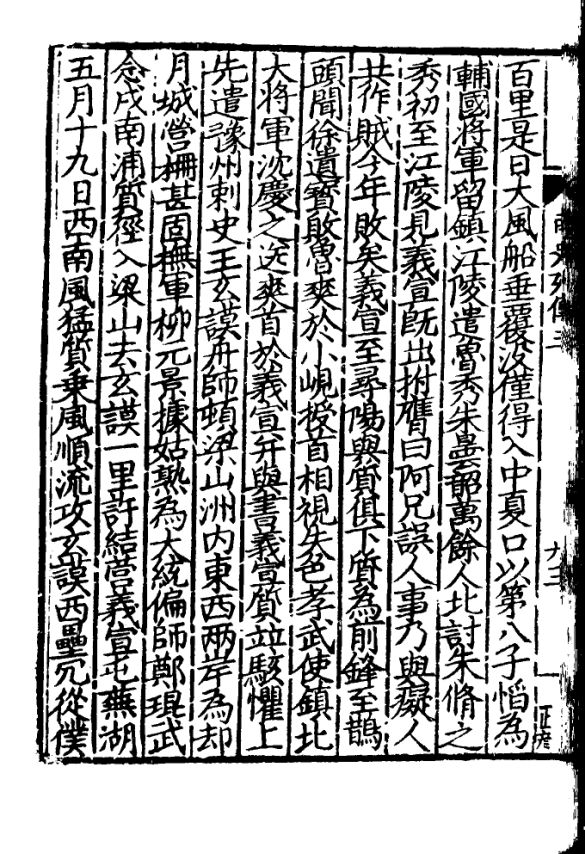 百里是日大風船垂覆没僅得入中夏口以第八子慆為
輔國將軍留鎮江陵遣魯秀朱曇韶萬餘人北討朱脩之
秀初至江陵見義宣既出拊膺曰阿兄誤人事乃與癡人
共作賊今年敗矣義宣至尋陽與質俱下質為前鋒至鵲
頭聞徐遺寳敗魯爽於小峴授首相視失色孝武使鎮北
大將軍沈慶之送爽首於義宣并與書義宣質並駭懼上
先遣豫州刺史王玄謨舟師頓梁山洲内東西兩岸為却
月城營柵甚固撫軍柳元景據姑熟為大統偏師鄭琨武
念戍南浦質徑入梁山去玄謨一里許結營義宣屯蕪湖
五月十九日西南風猛質乗風順流攻玄謨西壘冗從僕